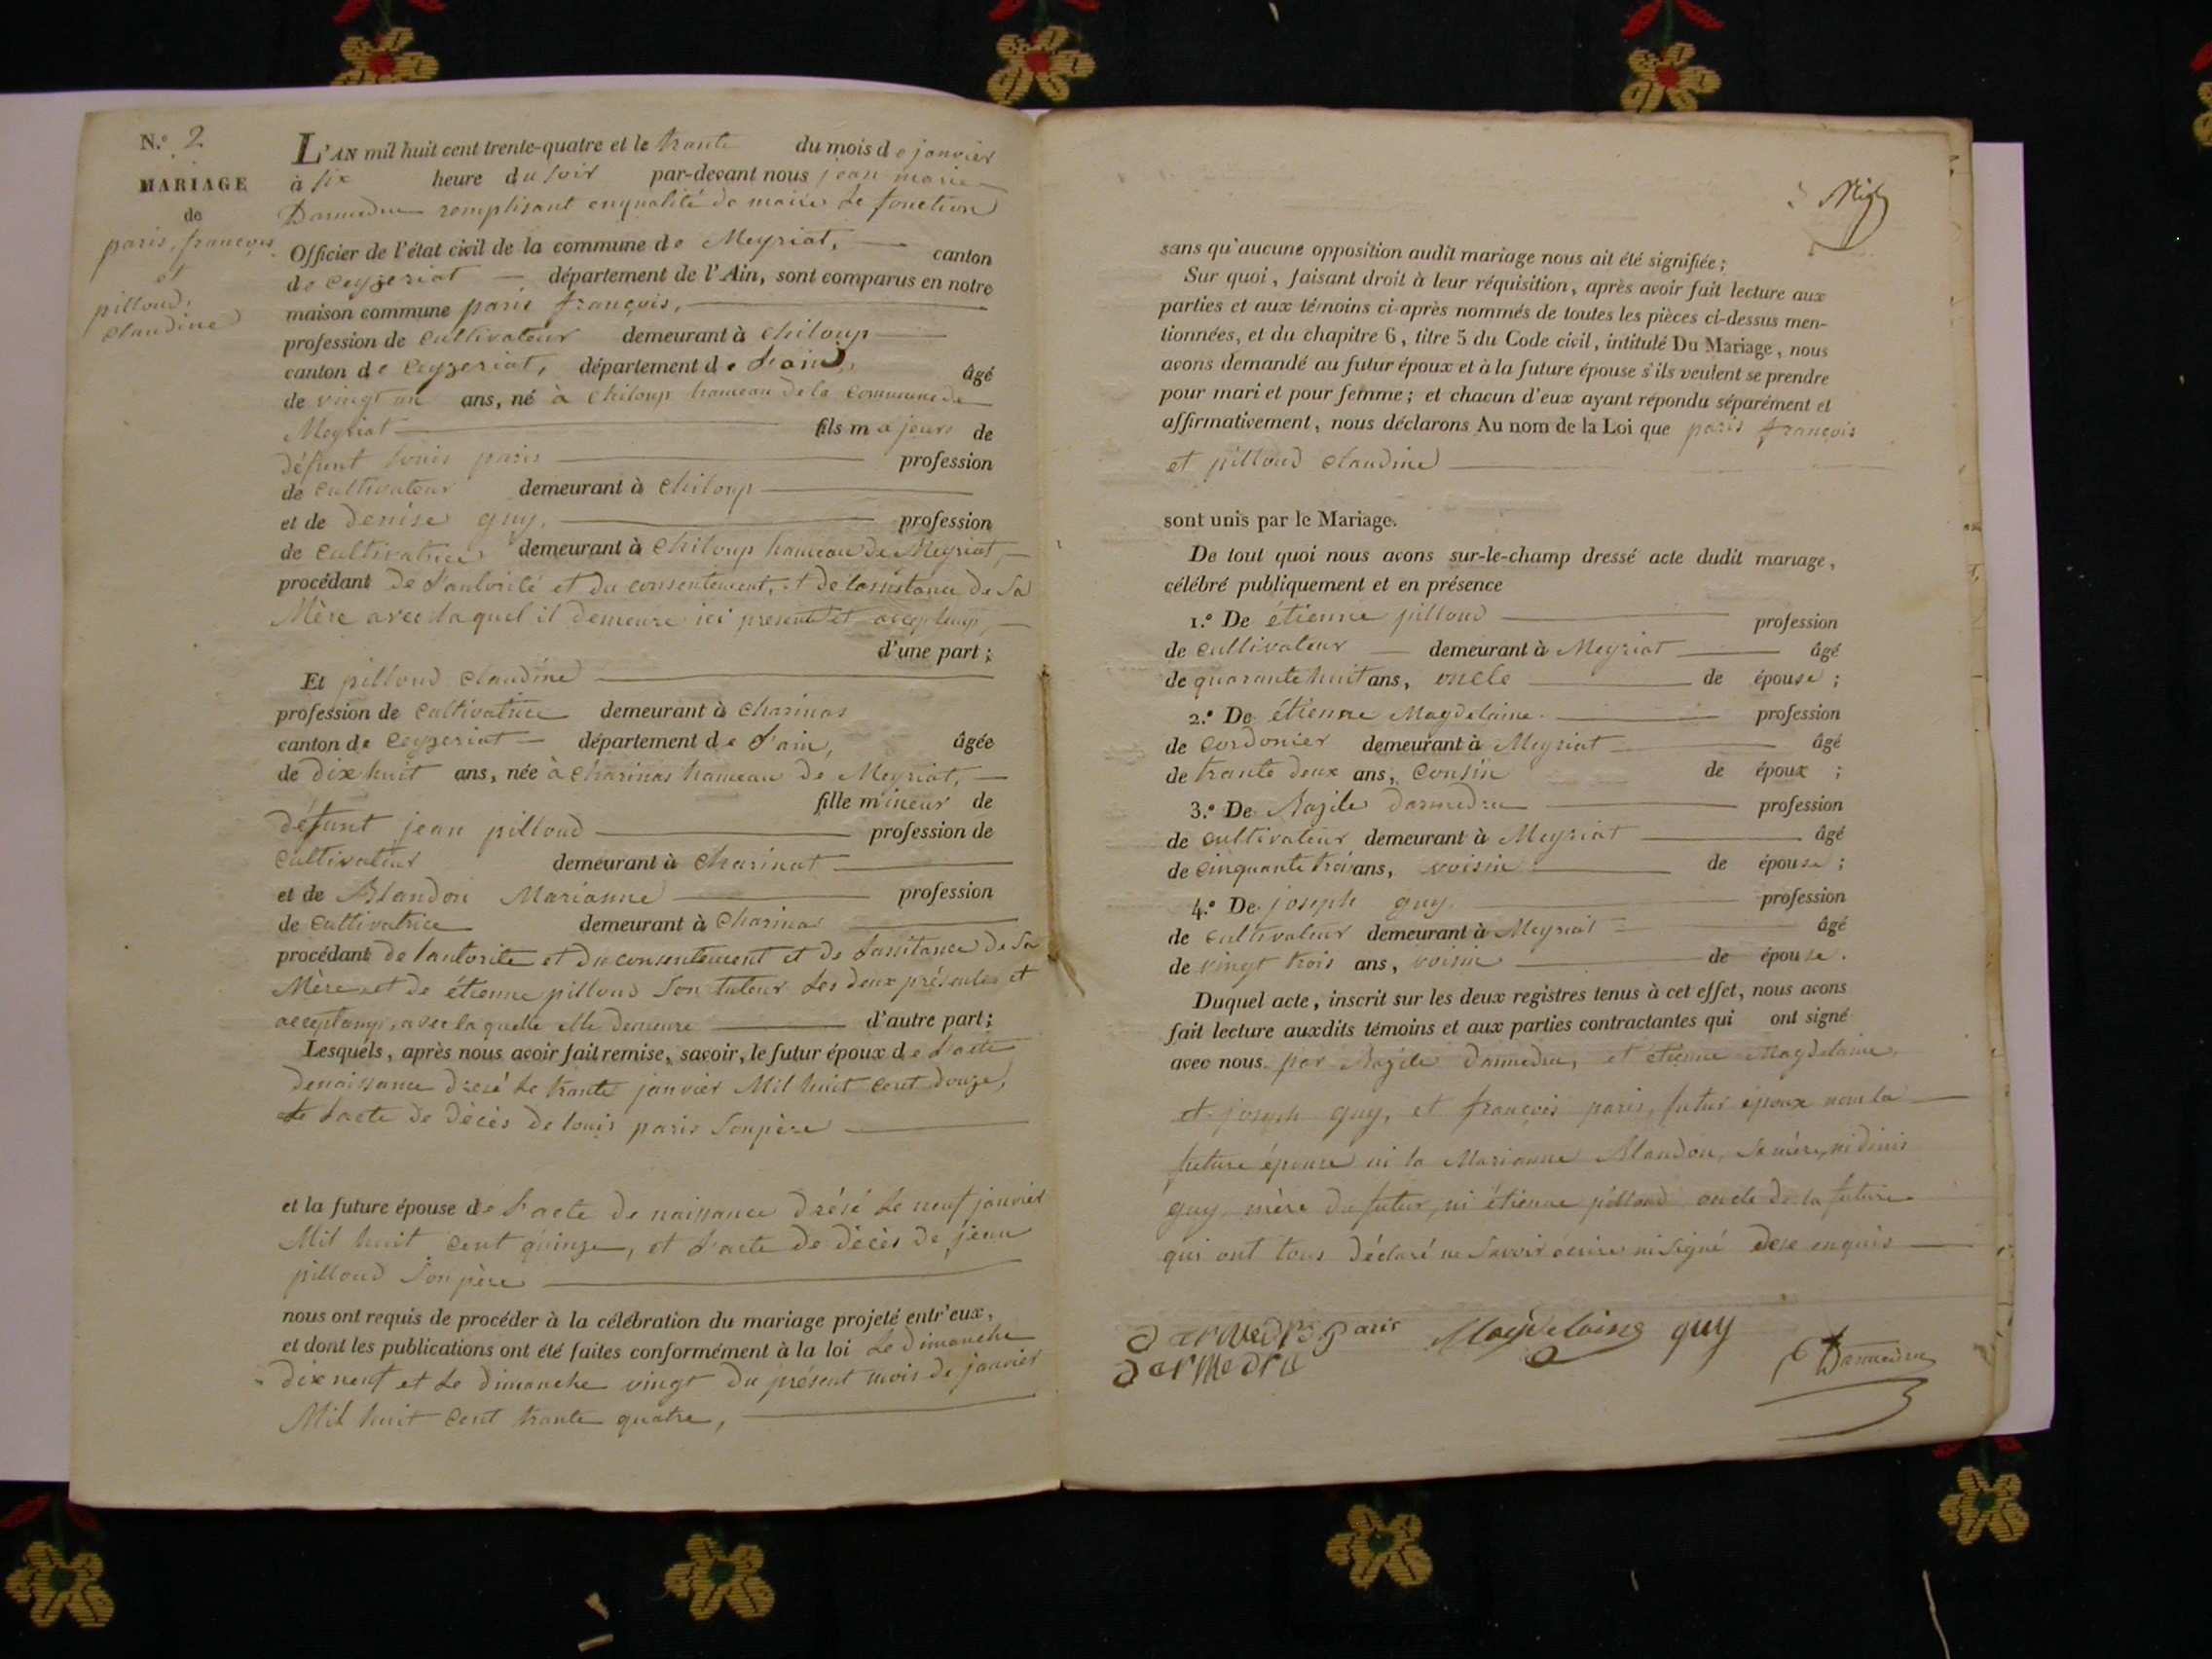 N.º 2
MARIAGE
de
paris, françois
et
pilloud,
claudine
L'AN mil huit cent trente-quatre et le trante du mois de janvier
à six heure du soir par-devant nous jean marie
Darmedru remplisant enqualité de maire le fonction
Officier de l'état civil de la commune de Meyriat, canton
de ceyzeriat département de l'Ain, sont comparus en notre
maison commune paris françois,
profession de cultivateur demeurant à chiloup
canton de ceyzeriat, département de l'ain, âgé
de vingt un ans, né à chiloup hameau de la commune de
Meyriat fils majeur de
défunt louis paris profession
de cultivateur demeurant à chiloup
et de denise guy, profession
de cultivatrice demeurant à chiloup hameau de Meyriat,
procédant de l'autorité et du consentement, et de l'assistance de sa
Mère avec laquel il demeure ici present et
d'une part;
Et pilloud claudine
profession de cultivatrice demeurant à charinas
canton de ceyzeriat département de l'ain, âgée
de dix huit ans, née à charinas hameau de Meyriat,
fille mineur de
défunt jean pilloud profession de
cultivateur demeurant à charinat
et de Blandon Marianne profession
de cultivatrice demeurant à charinas
procédant de lautorite et du consentement et de l'assitance de sa
Mère et de étienne pilloud son tuteur les deux présentes et
avec laquelle elle demeure d'autre part;
Lesquels, après nous avoir fait remise, savoir, le futur époux de l'acte
denaissance dresé le trante janvier Mil huit cent douze,
et l'acte de décès de louis paris son père
et la future épouse de l'acte de naissance drésé le neuf janvier
Mil huit cent quinze, et l'acte de décès de jean
pilloud son père
nous ont requis de procéder à la célébration du mariage projeté entr'eux,
et dont les publications ont été faites conformément à la loi le dimanche
dix neuf et le dimanche vingt du présent mois de janvier
Mil huit cent trante quatre,
sans qu'aucune opposition audit mariage nous ait été signifiée;
Sur quoi, faisant droit à leur réquisition, après avoir fait lecture aux
parties et aux témoins ci-après nommés de toutes les pièces ci-dessus men-
tionnées, et du chapitre 6, titre 5 du Code civil, intitulé Du Mariage, nous
avons demandé au futur époux et à la future épouse s'ils veulent se prendre
pour mari et pour femme; et chacun d'eux ayant répondu séparément et
affirmativement, nous déclarons Au nom de la Loi que paris françois
et pilloud claudine
sont unis par le Mariage.
De tout quoi nous avons sur-le-champ dressé acte dudit mariage,
célébré publiquement et en présence
1.º De étienne pilloud profession
de cultivateur demeurant à Meyriat âgé
de quarante huit ans, oncle de épouse;
2.º De étienne Magdelaine profession
de cordonier demeurant à Meyriat âgé
de trante deux ans, cousin de époux;
3.º De Bazile darmedru profession
de cultivateur demeurant à Meyriat âgé
de cinquante trois ans, voisin de épouse;
4.º De joseph guy, profession
de cultivateur demeurant à Meyriat âgé
de vingt trois ans, voisin de épouse.
Duquel acte, inscrit sur les deux registres tenus à cet effet, nous avons
fait lecture auxdits témoins et aux parties contractantes qui ont signé
avec nous par Bazile darmedru, et étienne Magdelaine,
et joseph guy, et françois paris, futur époux non la
future épouse ni la Marianne Blandon, sa mère, ni denis
guy mère du futur, ni étienne pilloud oncle de la future
qui ont tous déclaré ne savoir écrire ni signé de ce enquis
paris Magdelaine guy
darmedru Darmedru